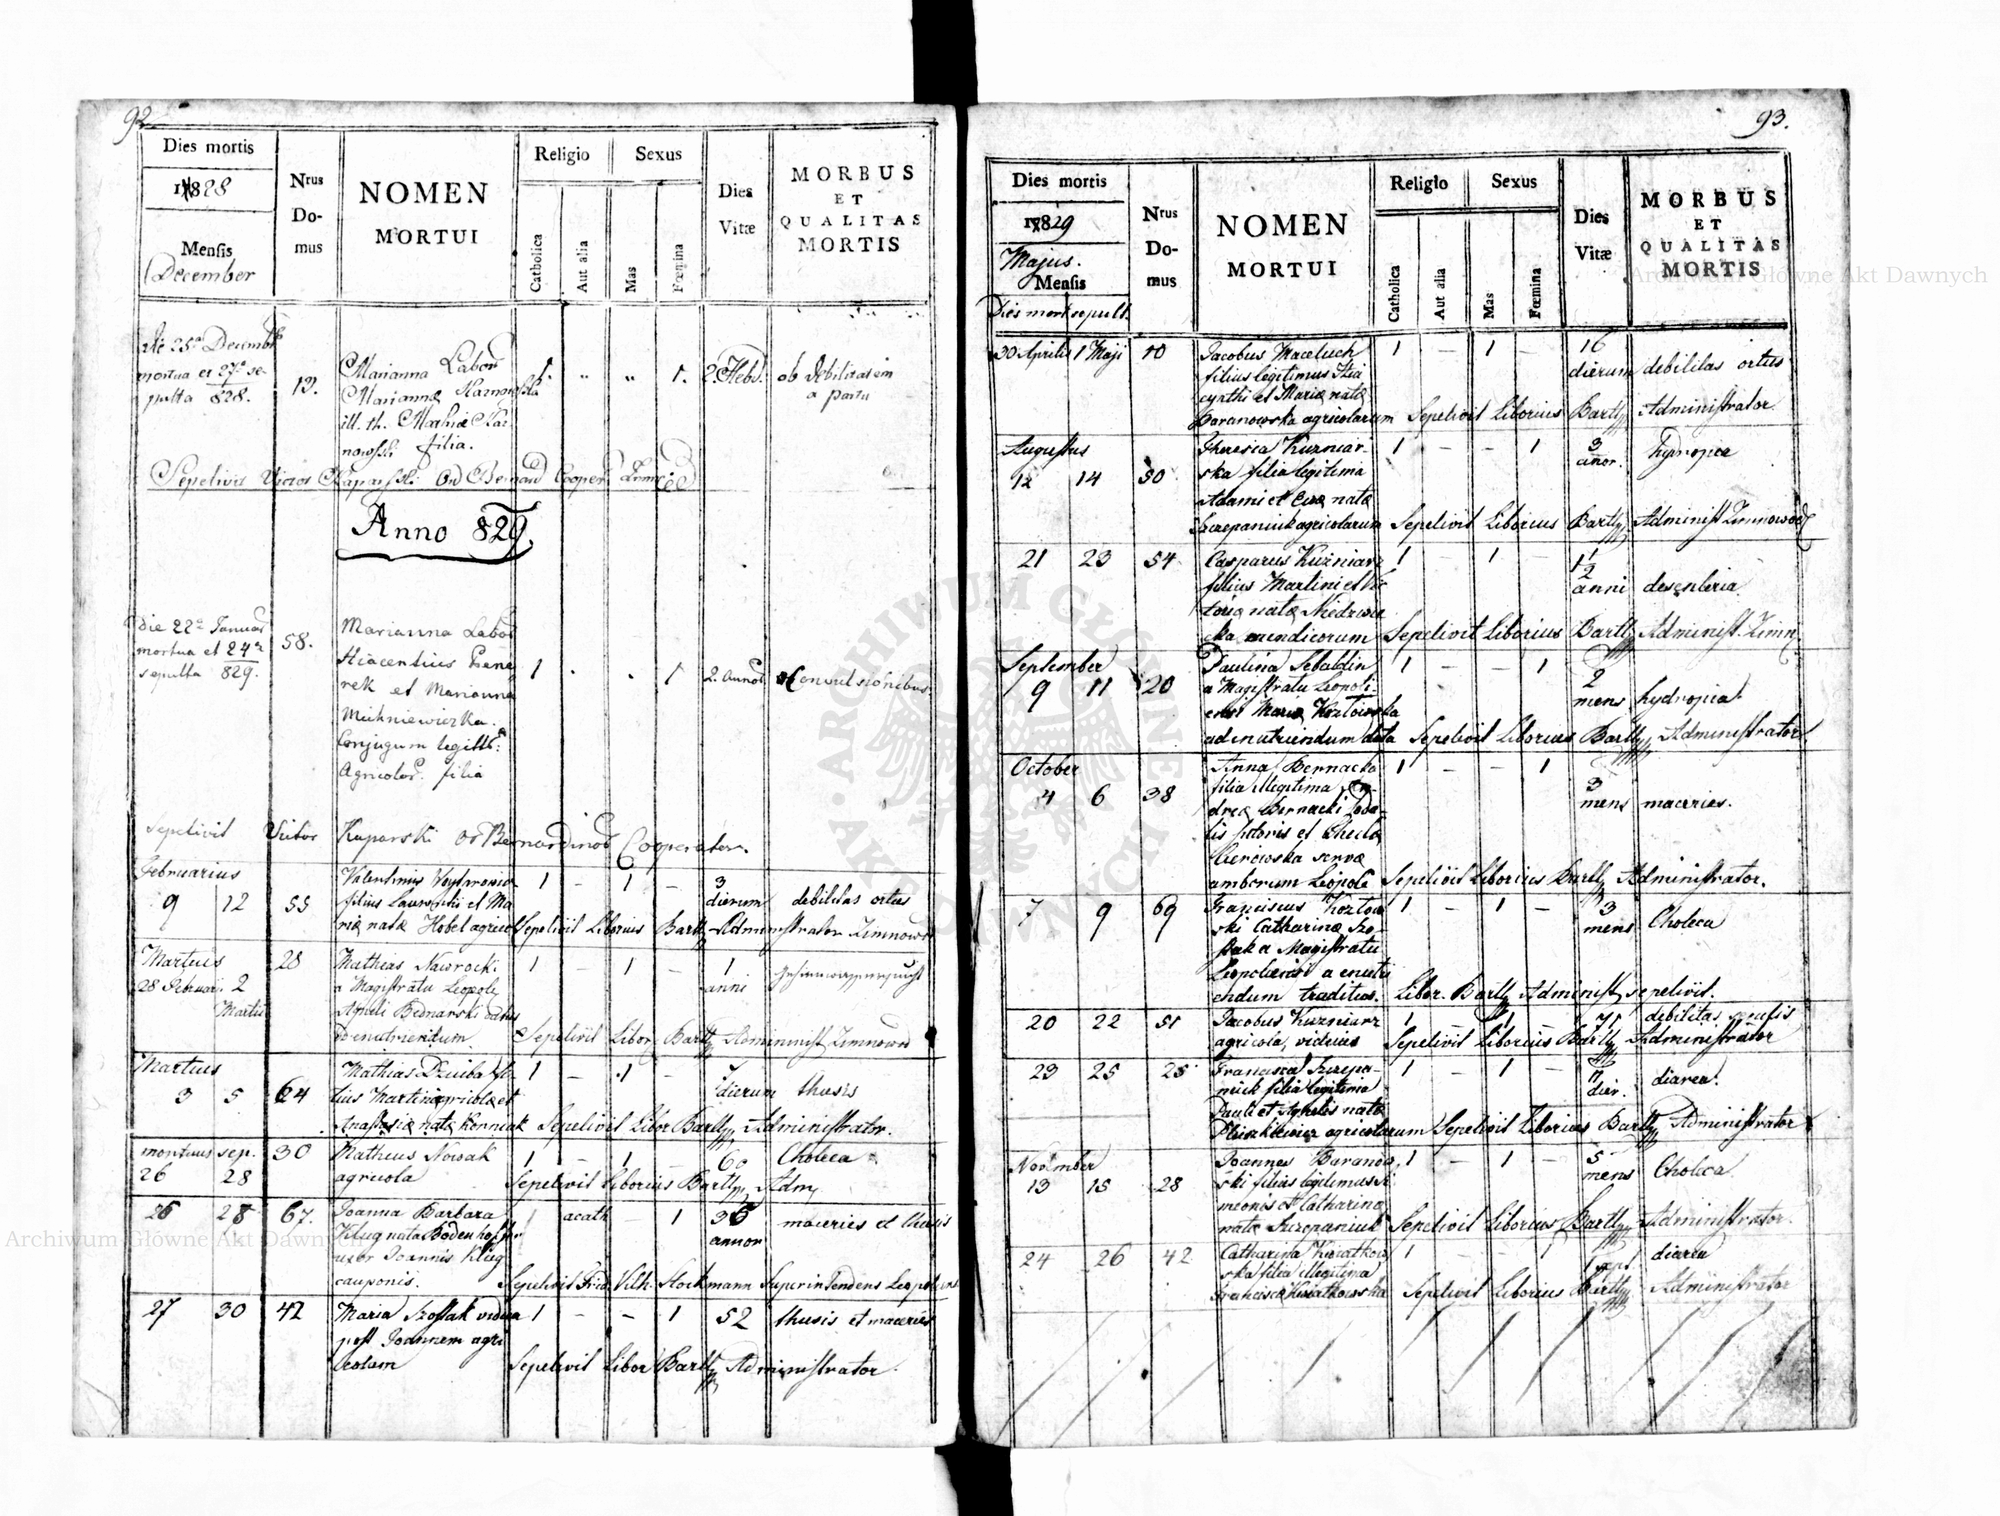 92
Dies mortis
1828
Mensis
December
Nrus
Do-
mus
NOMEN
MORTUI
Religio
Catholica
Aut alia
Sexus
Mas
Fœmina
Dies
Vitæ
MORBUS
ET
QUALITAS
MORTIS
Die 25a Decembr
mortua et 27a se-
pulta 828.
13.
Marianna Labor
Mariannæ
filia.
1. " " 1.
2. Hebd.
ob debilitatem
a partu
Anno 829.
Die 22a Januar
mortua et 24a
sepulta 829.
58.
Marianna Labor
Hiacentius
rek et Marianna
Michniewiczka.
Conjugum legitt:
Agricolar. filia
1 . . 1
2. annor
Convulsionibus
Sepelivit Victor Kuparski Or Bernardinor Cooperator.
Februarius
9 12 55
Valentinus
filius et Ma
riæ natæ Hobel agricol
1 – 1 –
3
dierum
debilitas ortus
Sepelivit Liborius Bartl Administrator Zimnowod
Martius
28 Februari 2
Martii
28
Mathias Nawrocki
a Magistratu Leopole
Agneti Bednarski datus
ad enutriendum.
1 – 1 –
1
anni
Sepelivit Libor Bartl Administ Zimnowod
Martius
3 5 64
Mathias Dziuba fi-
lius Martini agricolæ et
Anastasiæ natæ Korniak
1 – 1 –
7
dierum
thusis
Sepelivit Libor Bartl Administrator.
mortuus sep.
26 28
30
Matheus Nowak
agricola
1 – 1 –
60
Cholera
Sepelivit Liborius Bartl Adm
26 28 67.
Joanna Barbara
Klug nata Bodenhoffer
uxor Joannis Klug
cauponis.
1 acath – 1
36
annor
macries et thusis
Sepelivit Frid. Vilh. Stockmann Superintendens Leopoliens
27 30 42
Maria Szostak vidua
post Joannem agri
colam
1 – – 1
52
thusis et macries
Sepelivit Libor Bartl Administrator.
93.
Dies mortis
1829
Majus.
Mensis
Dies mort sepult.
Nrus
Do-
mus
NOMEN
MORTUI
Religio
Catholica
Aut alia
Sexus
Mas
Fœmina
Dies
Vitæ
MORBUS
ET
QUALITAS
MORTIS
30 Aprilis 1 Maji 10
Jacobus Maceluch
filius legitimus Hia
cynthi et Mariæ natæ
Baranowska agricolarum
1 – 1 –
16
dierum
debilitas ortus
Sepelivit Liborius Bartl Administrator.
Augustus
12 14 50
Theresia Kuzniar-
ska filia legitima
Adami et Evæ natæ
Szczepaniuk agricolarum
1 – – 1
3
anor.
hydropica
Sepelivit Liborius Bartl Administ Zimnowod
21 23 54
Casparus Kuzniarz
filius Martini et Vic
toriæ natæ Niedzwie
cka mendicorum
1 – 1 –
1
2
anni
desenteria
Sepelivit Liborius Bartl Administ. Zimn
September
9 11 20
Paulina Sebaldin
a Magistratu Leopoli
ensi Mariæ Kozłowska
ad enutriendum data
1 – – 1
2
mens
hydropica
Sepelivit Liborius Bartl Administrator.
October
4 6 38
Anna Bernacka
filia illegitima An-
dreæ Bernacki
et Theclæ
servæ
amborum Leopole
1 – – 1
3
mens
macries.
Sepelivit Liborius Bartl Administrator.
7 9 69
Franciscus Kozłow
ski Catharinæ Szo-
stak a Magistratu
Leopoliensi a enutri
endum traditus.
1 – 1 –
3
mens
Cholera
Libor. Bartl Administ sepelivit.
20 22 51
Jacobus Kuzniarz
agricola, viduus
1 – 1 –
71
debilitas senectutis
Sepelivit Liborius Bartl Administrator
23 25 25
Francisca Szczepa-
niuk filia legitima
Pauli et Agnetis natæ
agricolarum
1 – 1 –
dier.
diarea.
Sepelivit Liborius Bartl Administrator
November
13 15 28
Joannes Baranow
ski filius legitimus Si
meonis et Catharinæ
natæ Szczepaniuk
1 – 1 –
5
mens
Cholera
Sepelivit Liborius Bartl Administrator.
24 26 42
Catharina Kwiatkow
ska filia illegitima
Franciscæ Kwiatkowska
1 – – 1
1
sept.
diarea
Sepelivit Liborius Bartl Administrator
Archiwum Główne Akt Dawnych
Archiwum Główne Akt Dawnych
ARCHIWUM GŁÓWNE AKT DAWNYCH